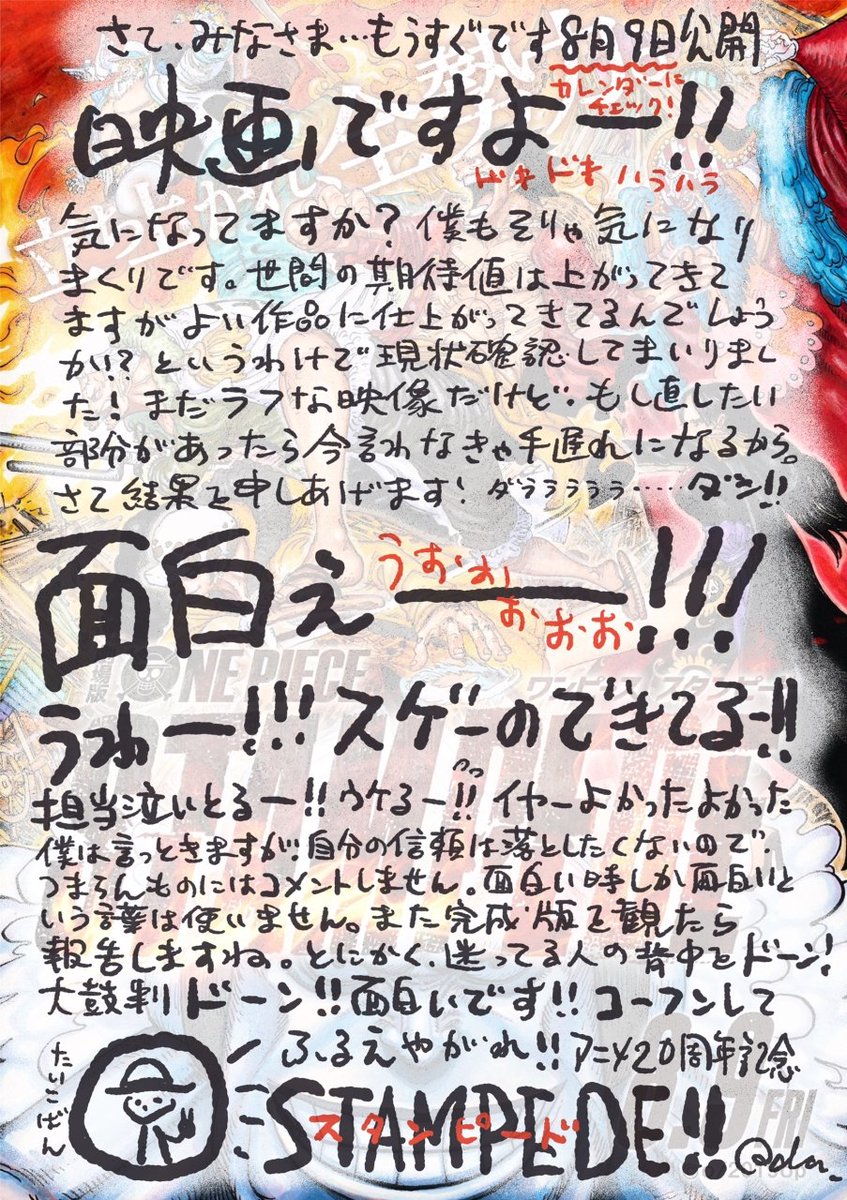 さて、みなさま…もうすぐです8月9日公開
カレンダーに
チェック!
映画ですよー!!
ドキドキ ハラハラ
気になってますか?僕もそりゃ気になり
まくりです。世間の期待値は上がってきて
ますがよい作品に仕上がってきてるんでしょう
かい?というわけで現状確認してまいりまし
た!まだラフな映像だけど、もし直したい
部分があったら今言わなきゃ手遅れになるから。
さて結果を申しあげます!ダララララ……ダン!!
面白ぇーー!!!
うおぉぉ
おおお
うわー!!!スゲーのできてるー!!
担当泣いとるー!!ウケるー!!イヤーよかったよかった
僕は言っときますが、自分の信頼は落としたくないので、
つまらんものにはコメントしません。面白い時しか面白いと
いう言葉は使いません。また完成版を観たら
報告しますね。とにかく、迷ってる人の背中をドーン!
太鼓判ドーン!!面白いです!!コーフンして
ふるえやがれ!!アニメ20周年記念
たいこばん
STAMPEDE!!
スタンピード
劇場版 ONE PIECE
ワンピース スタンピード
STAMPEDE
8.9 FRI